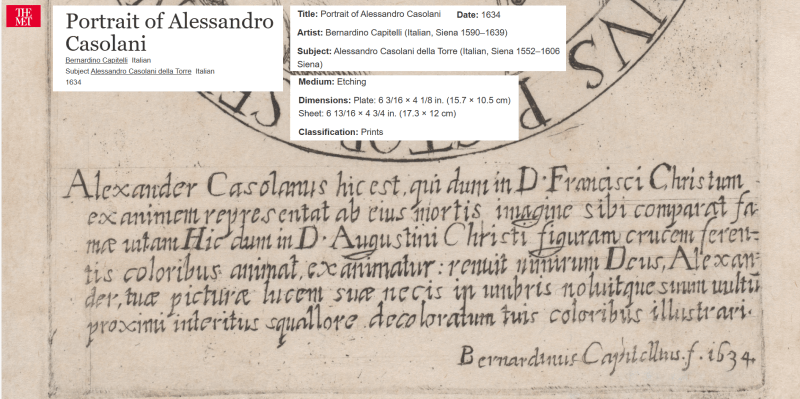 THE MET
Portrait of Alessandro
Casolani
Bernardino Capitelli Italian
Subject Alessandro Casolani della Torre Italian
1634
Title: Portrait of Alessandro Casolani Date: 1634
Artist: Bernardino Capitelli (Italian, Siena 1590–1639)
Subject: Alessandro Casolani della Torre (Italian, Siena 1552–1606
Siena)
Medium: Etching
Dimensions: Plate: 6 3/16 × 4 1/8 in. (15.7 × 10.5 cm)
Sheet: 6 13/16 × 4 3/4 in. (17.3 × 12 cm)
Classification: Prints
Alexander Casolanus hic est, qui dum in D. Francisci Christum
exanimem repręsentat ab eius mortis imagine sibi comparat fa
mæ uitam Hic dum in D. Augustini Christi figuram crucem feren=
tis coloribus animat, exanimatur: renuit nimirum Deus, Alexan=
der, tuæ picturæ lucem suæ necis in umbris noluitque suum uultũ
proximi interitus squallore decoloratum tuis coloribus illustrari.
Bernardinus Capitellius . f . 1634.